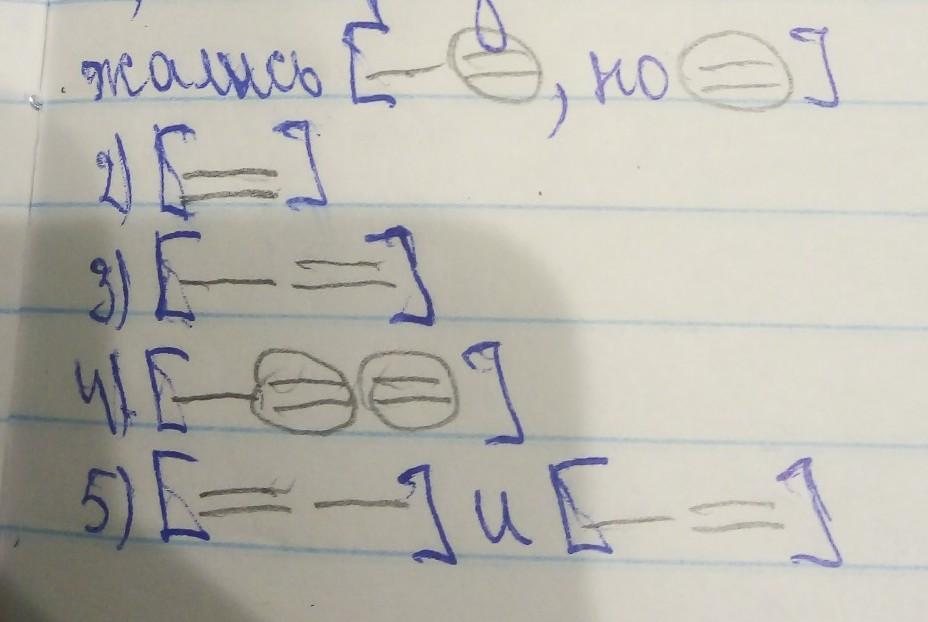 жались [— =, но =]
2) [=]
3) [— =]
4) [— = =]
5) [= —] и [— =]